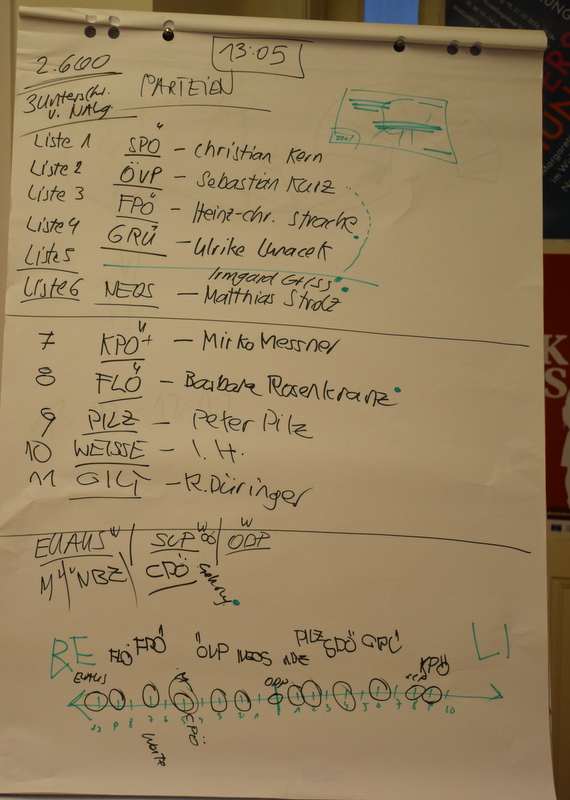 13:05
2.600
3 Unterschr.
v. NAbg.
PARTEIEN
Liste 1 SPÖ – Christian Kern
Liste 2 ÖVP – Sebastian Kurz
Liste 3 FPÖ – Heinz-Chr. Strache
Liste 4 GRÜ – Ulrike Lunacek
Liste 5
Irmgard Griss
Liste 6 NEOS – Matthias Strolz
7 KPÖ+ – Mirko Messner
8 FLÖ – Barbara Rosenkranz
9 PILZ – Peter Pilz
10 WEISSE – I.H.
11 GILT – R. Düringer
EUAUS W | SLP W OÖ | ODP W
M "4" NBZ CPÖ
RE LI
FLÖ FPÖ ÖVP NEOS PILZ SPÖ GRÜ KPÖ
EUAUS M ODP SLP
10 9 8 7 6 5 4 3 2 1 1 2 3 4 5 6 7 8 9 10
Weiße CPÖ